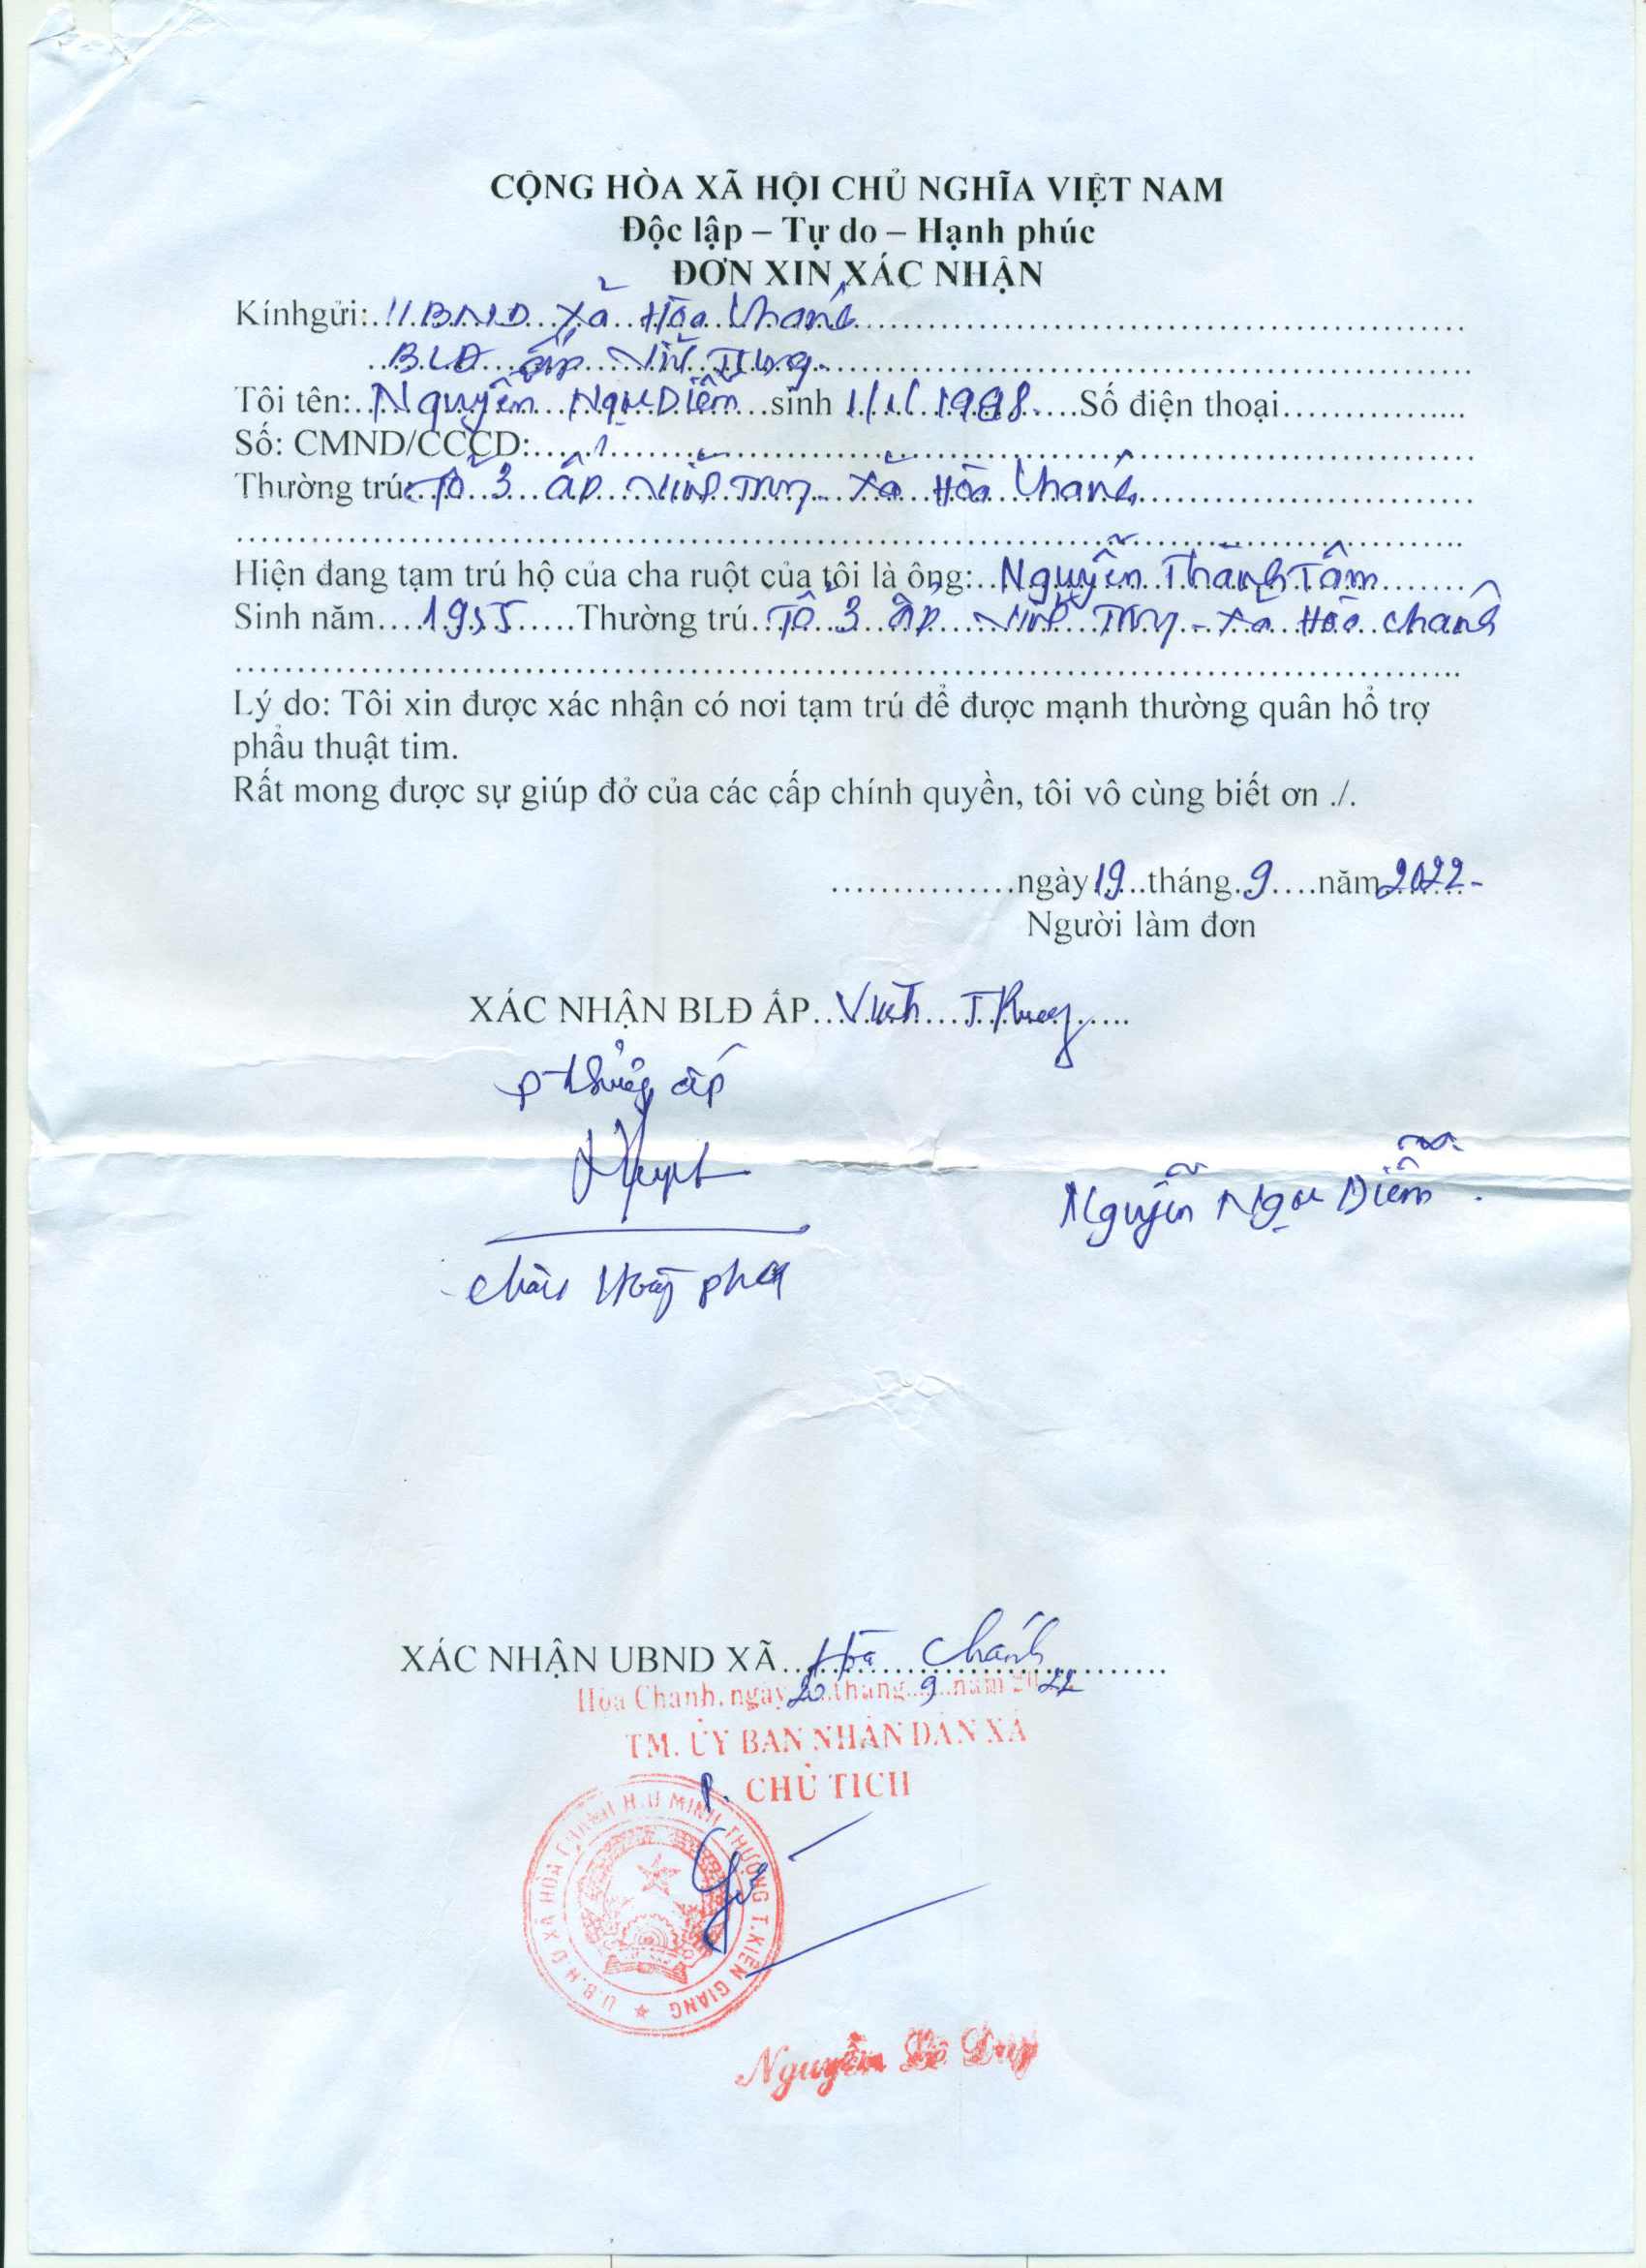 CỘNG HÒA XÃ HỘI CHỦ NGHĨA VIỆT NAM
Độc lập – Tự do – Hạnh phúc
ĐƠN XIN XÁC NHẬN
Kínhgửi: UBND xã Hòa Chánh
BLĐ ấp Vĩnh Trung
Tôi tên: Nguyễn Ngọc Diễm sinh 1/1/1998 Số điện thoại
Số: CMND/CCCD:
Thường trú: Tổ 3 ấp Vĩnh Trung - xã Hòa Chánh
Hiện đang tạm trú hộ của cha ruột của tôi là ông: Nguyễn Thành Tâm
Sinh năm 1955 Thường trú Tổ 3 ấp Vĩnh Trung - xã Hòa Chánh
Lý do: Tôi xin được xác nhận có nơi tạm trú để được mạnh thường quân hổ trợ
phẩu thuật tim.
Rất mong được sự giúp đở của các cấp chính quyền, tôi vô cùng biết ơn ./.
ngày 19 tháng 9 năm 2022
Người làm đơn
XÁC NHẬN BLĐ ẤP Vĩnh Trung
P trưởng ấp
Nguyễn Ngọc Diễm
XÁC NHẬN UBND XÃ Hòa Chánh
Hòa Chánh, ngày 20 tháng 9 năm 2022
TM. ỦY BAN NHÂN DÂN XÃ
P. CHỦ TỊCH
U.B.N.D XÃ HÒA CHÁNH H.U MINH THƯỢNG T.KIÊN GIANG
Nguyễn Lê Duy